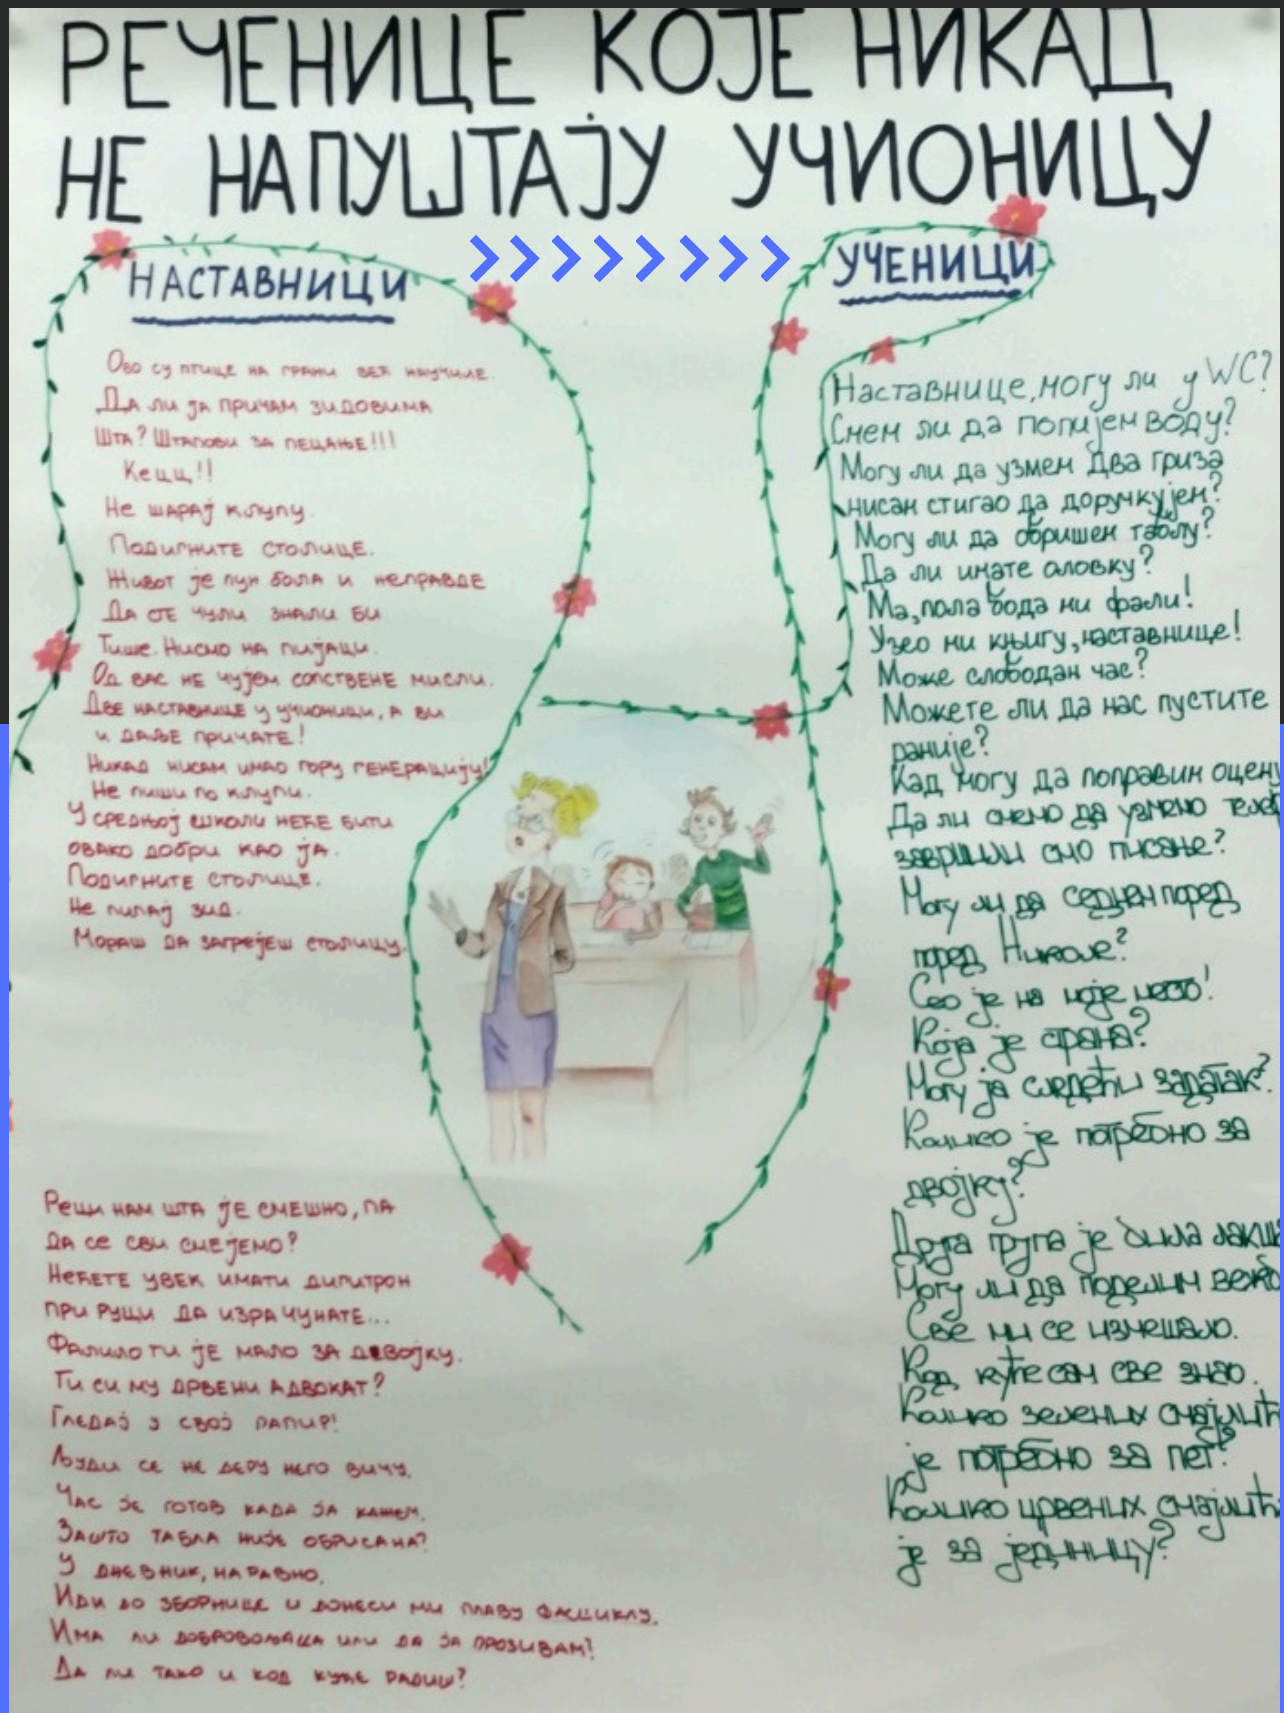 РЕЧЕНИЦЕ КОЈЕ НИКАД
НЕ НАПУШТАЈУ УЧИОНИЦУ
НАСТАВНИЦИ
Ово су птице на грани већ научиле.
Да ли ја причам зидовима
Шта? Штапови за пецање!!!
Кецц!!
Не шарај клупу.
Подигните столице.
Живот је пун бола и неправде
Да сте чули знали би
Тише. Нисмо на пијаци.
Од вас не чујем сопствене мисли.
Две наставнице у учионици, а ви
и даље причате!
Никад нисам имао гору генерацију!
Не пиши по клупи.
У средњој школи неће бити
овако добри као ја.
Подигните столице.
Не пипај зид.
Мораш да загрејеш столицу.
Реци нам шта је смешно, па
да се сви смејемо?
Нећете увек имати дигитрон
при руци да израчунате...
Фалило ти је мало за двојку.
Ти си му дрвени адвокат?
Гледај у свој папир!
Људи се не деру него вичу.
Час је готов када ја кажем.
Зашто табла није обрисана?
У дневник, наравно.
Иди до зборнице и донеси ми плаву фасциклу.
Има ли добровољаца или да ја прозивам?
Да ли тако и код куће радиш?
УЧЕНИЦИ
Наставнице, могу ли у WC?
Смем ли да попијем воду?
Могу ли да узмем два гриза
нисам стигао да доручкујем?
Могу ли да обришем таблу?
Да ли имате оловку?
Ма, пола бода ми фали!
Узео ми књигу, наставнице!
Може слободан час?
Можете ли да нас пустите
раније?
Кад могу да поправим оцену
Да ли смемо да узмемо
завршили смо писање?
Могу ли да седнем поред
поред Николе?
Сео је на моје место!
Која је страна?
Могу ја следећи задатак?
Колико је потребно за
двојку?
Друга група је била
Могу ли да поделим
Све ми се измешало.
Код куће сам све знао.
Колико зелених
је потребно за пет?
Колико црвених
је за јединицу?